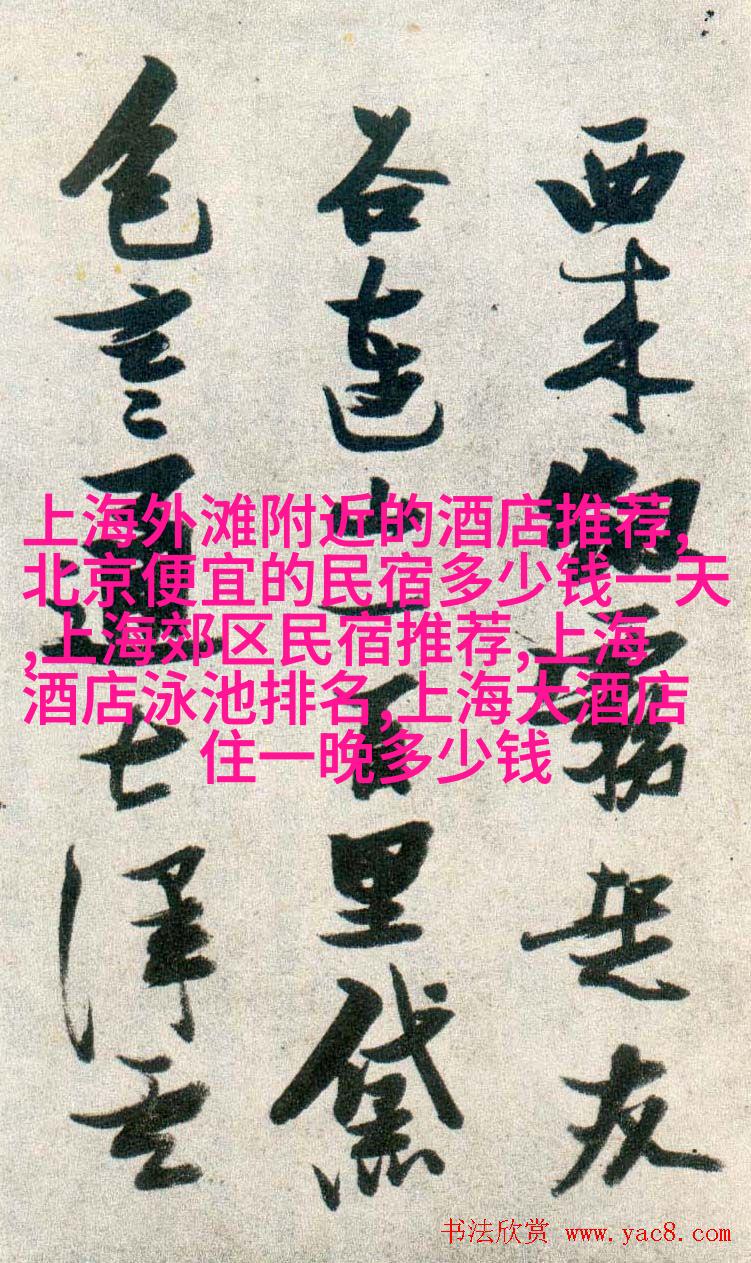 西来
谷連山百里黛
色言七澤
上海外滩附近的酒店推荐,
北京便宜的民宿多少钱一天
,上海郊区民宿推荐,上海
酒店泳池排名,上海大酒店
住一晚多少钱
书法欣赏 www.yac8.com